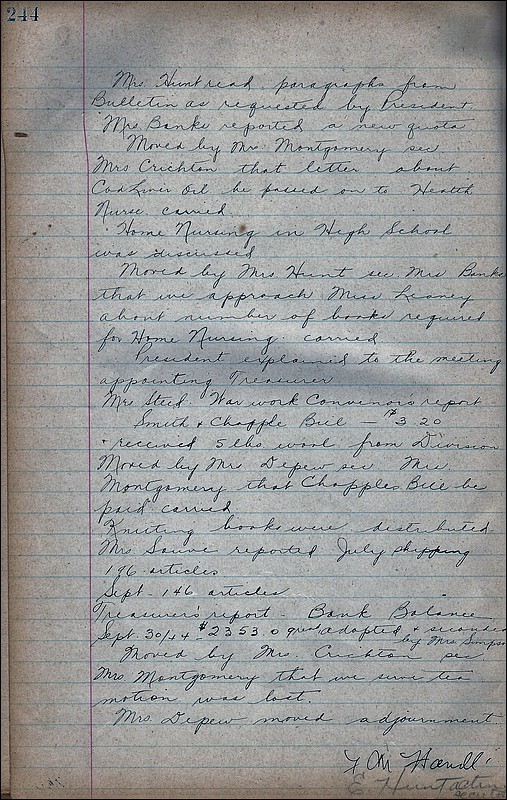 244
Mrs. Hunt read paragraphs from
Bulletin as requested by President
Mrs. Banks reported a new quota
Moved by Mrs. Montgomery sec
Mrs Crichton that letter about
Cod Liver Oil be passed on to Health
Nurse. carried
Home Nursing in High School
was discussed
Moved by Mrs Hunt sec. Mrs Banks
that we approach Miss Leaney
about number of books required
for Home Nursing. carried
President explained to the meeting
appointing Treasurer
Mrs Steed. War work Convenor's report
Smith & Chapple Bill — $3.20
+ received 5 lbs wool from Division
Moved by Mrs Depew sec Mrs.
Montgomery that Chapples Bill be
paid carried
Knitting books were distributed
Mrs Sauve reported July shipping
196 articles
Sept - 146 articles
Treasurer's report - Bank Balance
Sept. 30/44 - $2353.0 adopted & seconded
by Mrs. Simpson
Moved by Mrs. Crichton sec
Mrs. Montgomery that we serve tea
motion was lost.
Mrs. Depew moved adjournment.
E Hunt